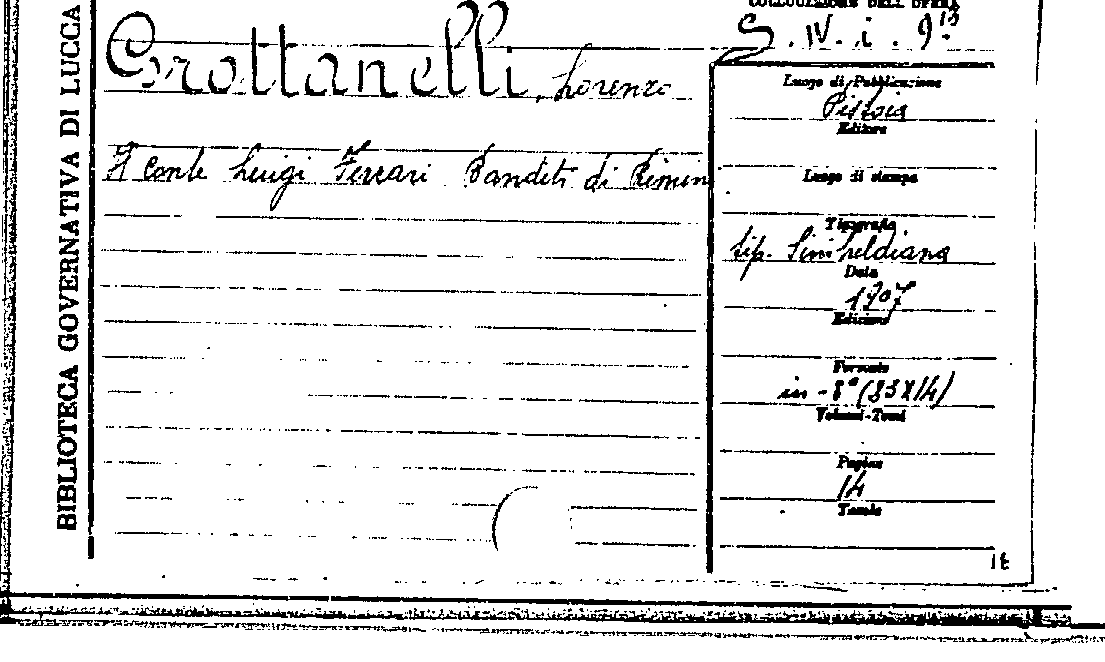 BIBLIOTECA GOVERNATIVA DI LUCCA
COLLOCAZIONE DELL'OPERA
S. IV. i. 9¹³
Grottanelli, Lorenzo
Luogo di Pubblicazione
Pistoia
Editore
Il Conte Luigi Ferrari Banditi di Rimini
Luogo di stampa
Tipografia
tip. Sinibaldiana
Data
1907
Edizione
Formato
in-8° (
Volumi-Tomi
Pagine
14
Tavole